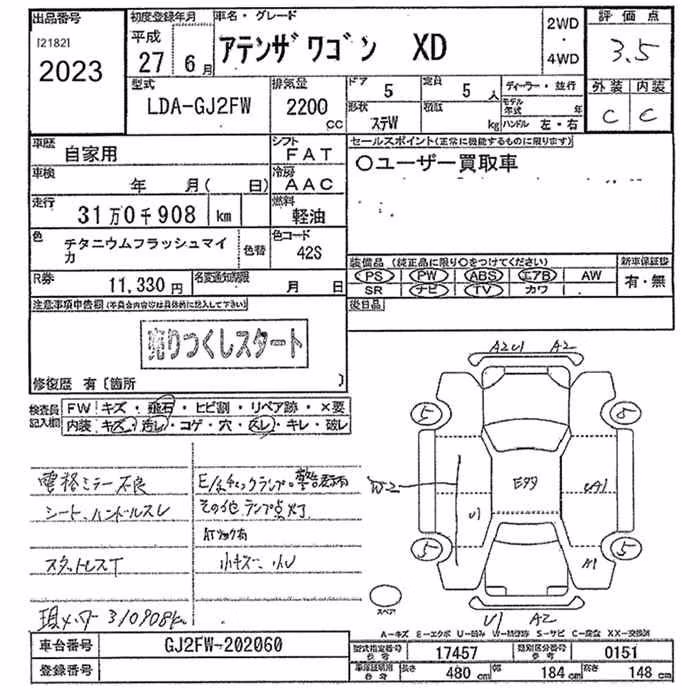 出品番号 初度登録年月 車名・グレード 2WD 評価点
121821 平成 ・ 3.5
2023 27 6月 アテンザワゴン XD 4WD
型式 排気量 ドア 5 定員 5人 ディーラー・並行 外装 内装
LDA-GJ2FW 2200cc 形状 ステW 積載 kg モデル年式 年 C C
ハンドル 左・右
車歴 自家用 シフト FAT セールスポイント(正常に機能するものに限ります)
車検 年 月( 日) 冷房 AAC ○ユーザー買取車
走行 31万0千908 km 燃料 軽油
色 チタニウムフラッシュマイカ 色替 色コード 42S
装備品(純正品に限り○をつけてください) 新車保証書
R券 11,330円 名変通知期限 月 日 PS PW ABS エアB AW 有・無
SR ナビ TV カワ
注意事項申告欄(不具合内容等は具体的に記入して下さい) 後日品
売りつくしスタート
修復歴 有〔箇所 〕
A2U1 A2
検査員記入欄 FW キズ・飛石・ヒビ割・リペア跡・×要
内装 キズ・汚レ・コゲ・穴・スレ・キレ・破レ
5 5
電格ミラー不良 E/gチェックランプ。警告表示有
W2 Eタタ UA1
シート、ハンドルスレ その他ランプ点灯
U1
スタットレスT 小キズ、小U
5 5
A1
スペア
現メーター310908km
U1 A2
A-キズ E-エクボ U-凹み W-補修跡 S-サビ C-腐食 XX-交換済
車台番号 GJ2FW-202060 型式指定番号参考 17457 類別区分番号参考 0151
登録番号 車庫証明用参考 長さ 480cm 幅 184cm 高さ 148cm